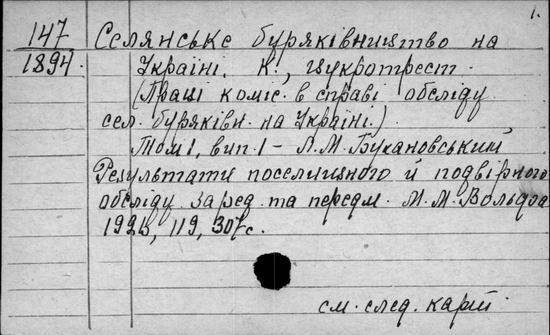 1.
147 Селянське буряківництво на
1894. Україні. К., Цукротрест.
(Праці коміс. в справі обсліду
сел. буряківн. на Україні.)
Том І, вип. І – Л.М. Букановський
Результати поселищного й подвірного
обсліду за ред. та передм. М.М. Вольфа
119, 307с.
см. след. карт.